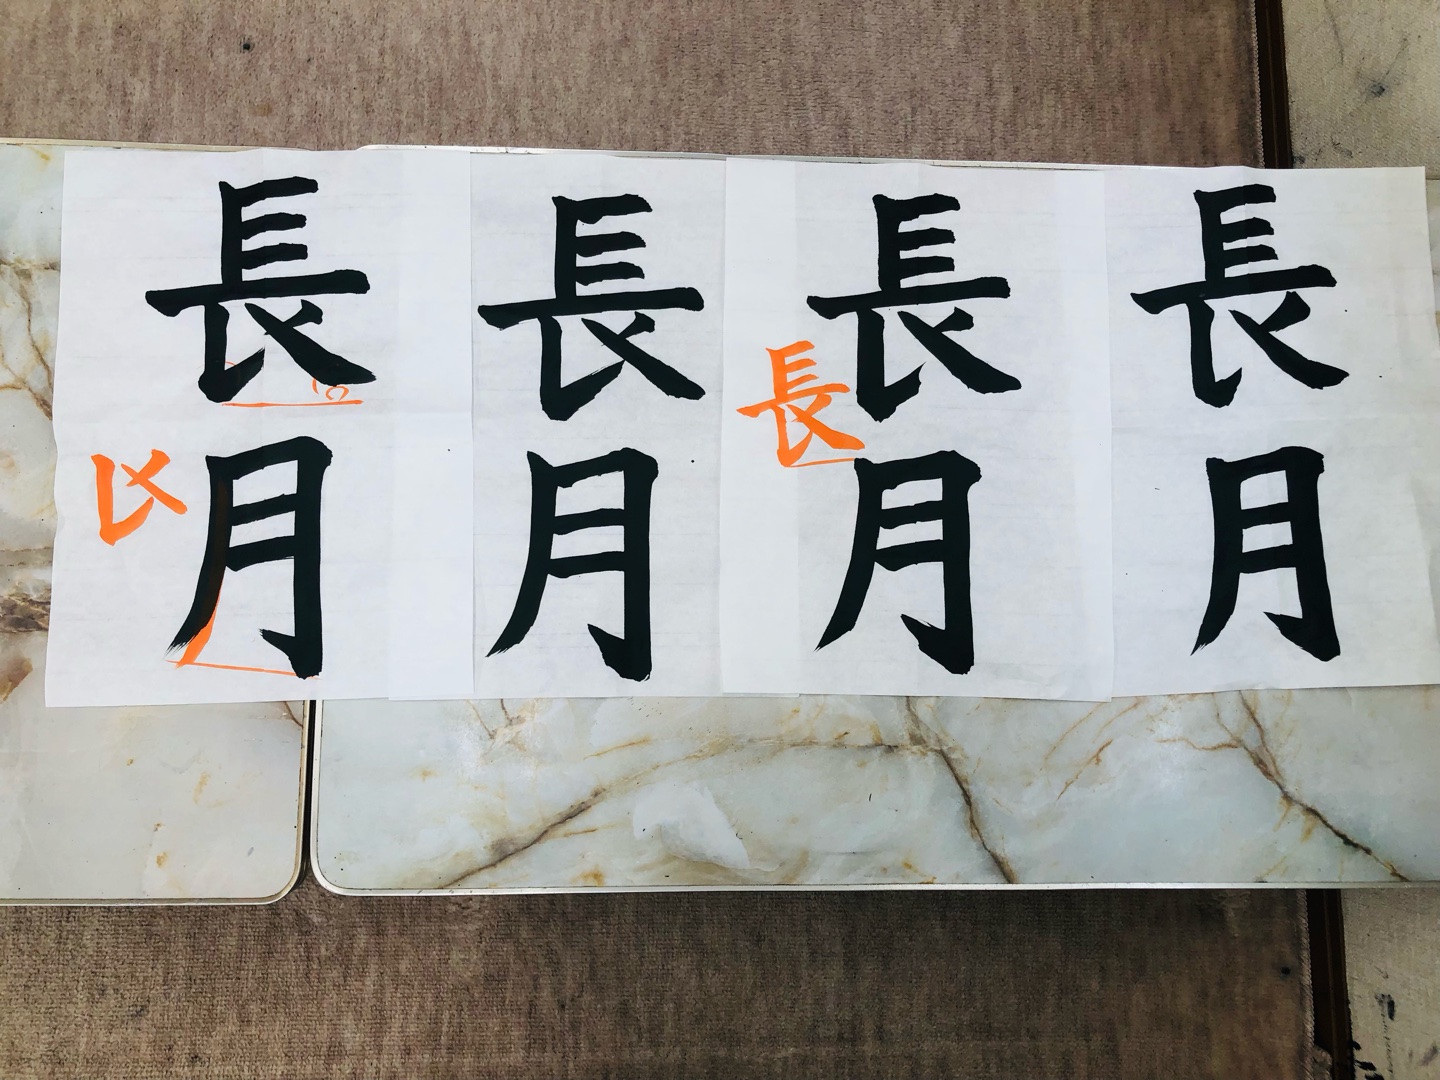 長月
長月
長
長月
長月